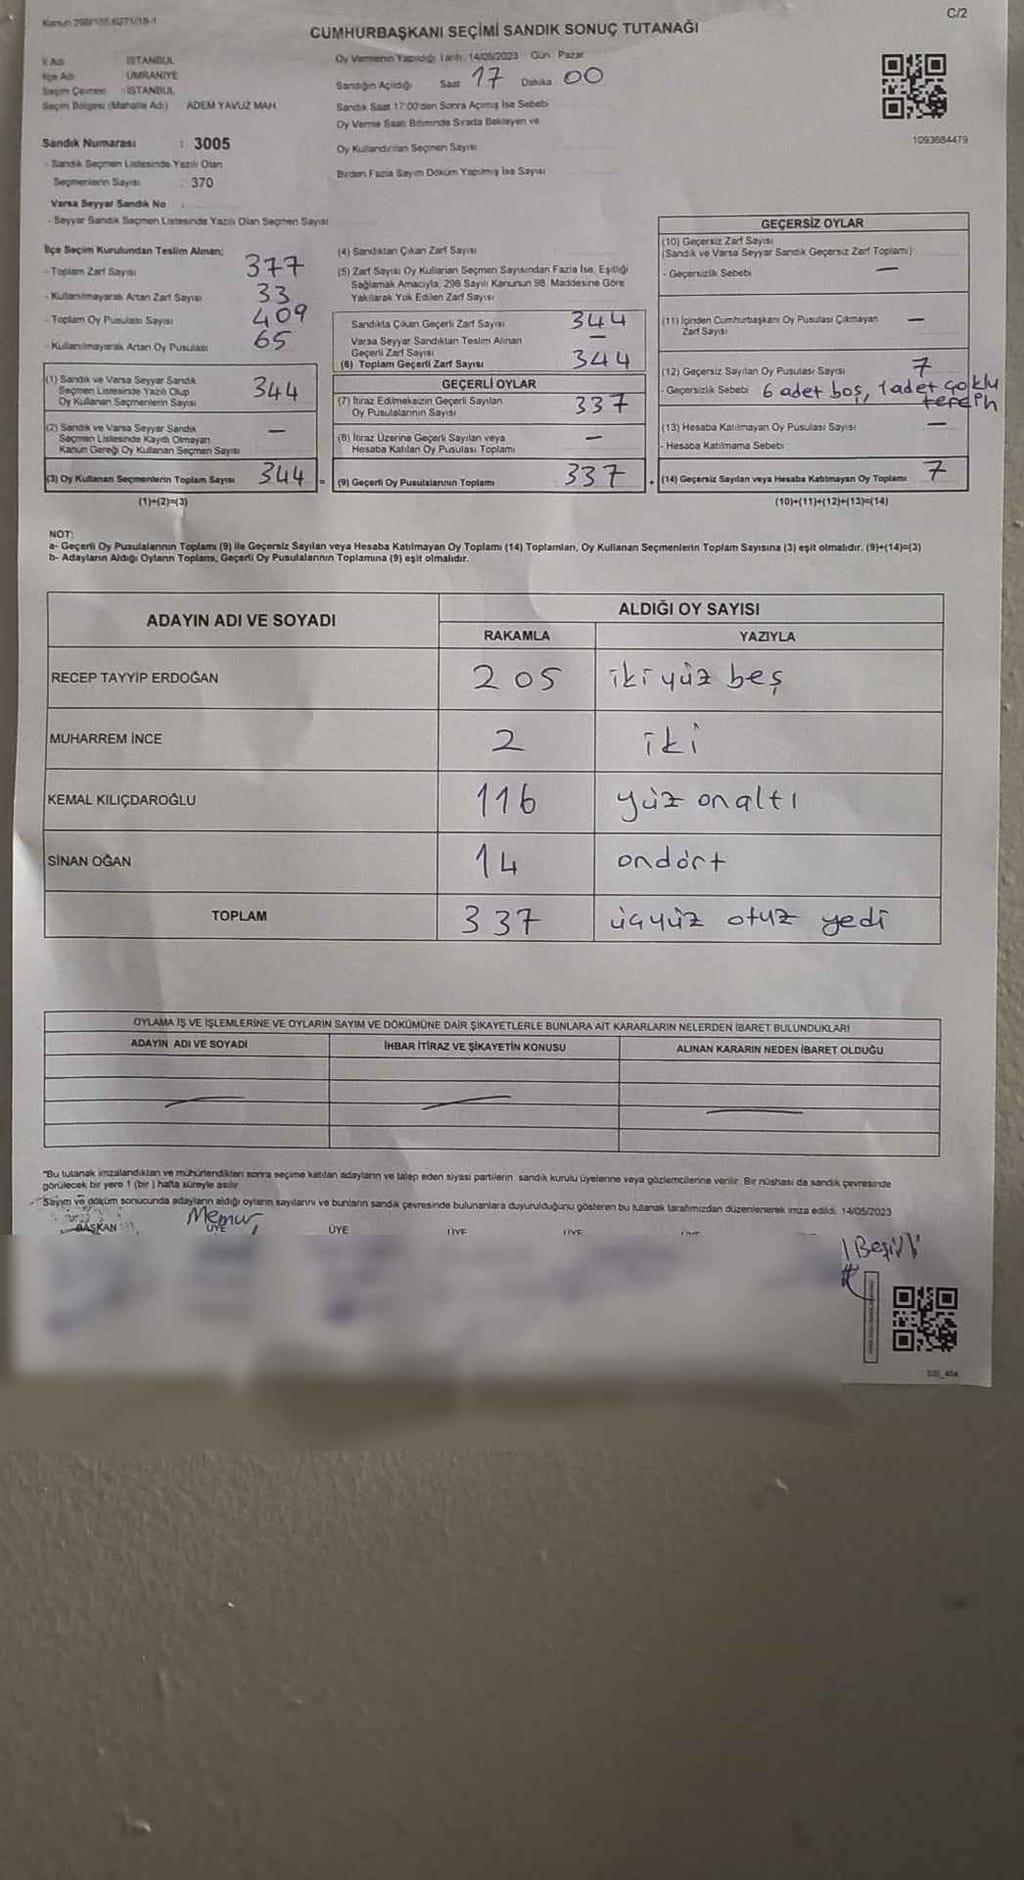 Kanun 298/105 6271/18-1
C/2
CUMHURBAŞKANI SEÇİMİ SANDIK SONUÇ TUTANAĞI
İl Adı İSTANBUL
İlçe Adı ÜMRANİYE
Seçim Çevresi : İSTANBUL
Seçim Bölgesi (Mahalle Adı) ADEM YAVUZ MAH.
Oy Vermenin Yapıldığı Tarih: 14/05/2023 Gün: Pazar
Sandığın Açıldığı Saat 17 Dakika 00
Sandık Saat 17:00'den Sonra Açımış İse Sebebi
Oy Verme Saati Bitiminde Sırada Bekleyen ve
Oy Kullandırılan Seçmen Sayısı
Birden Fazla Sayım Döküm Yapılmış İse Sayısı
1093684479
Sandık Numarası : 3005
- Sandık Seçmen Listesinde Yazılı Olan
Seçmenlerin Sayısı : 370
Varsa Seyyar Sandık No :
- Seyyar Sandık Seçmen Listesinde Yazılı Olan Seçmen Sayısı
İlçe Seçim Kurulundan Teslim Alınan;
- Toplam Zarf Sayısı 377
- Kullanılmayarak Artan Zarf Sayısı 33
- Toplam Oy Pusulası Sayısı 409
- Kullanılmayarak Artan Oy Pusulası 65
(1) Sandık ve Varsa Seyyar Sandık
Seçmen Listesinde Yazılı Olup
Oy Kullanan Seçmenlerin Sayısı 344
(2) Sandık ve Varsa Seyyar Sandık
Seçmen Listesinde Kayıtlı Olmayan
Kanun Gereği Oy Kullanan Seçmen Sayısı —
(3) Oy Kullanan Seçmenlerin Toplam Sayısı 344 =
(1)+(2)=(3)
(4) Sandıktan Çıkan Zarf Sayısı
(5) Zarf Sayısı Oy Kullanan Seçmen Sayısından Fazla İse, Eşitliği
Sağlamak Amacıyla, 298 Sayılı Kanunun 98. Maddesine Göre
Yakılarak Yok Edilen Zarf Sayısı
Sandıkta Çıkan Geçerli Zarf Sayısı 344
Varsa Seyyar Sandıktan Teslim Alınan
Geçerli Zarf Sayısı —
(6) Toplam Geçerli Zarf Sayısı 344
GEÇERLİ OYLAR
(7) İtiraz Edilmeksizin Geçerli Sayılan
Oy Pusulalarının Sayısı 337
(8) İtiraz Üzerine Geçerli Sayılan veya
Hesaba Katılan Oy Pusulası Toplamı —
(9) Geçerli Oy Pusulalarının Toplamı 337 +
GEÇERSİZ OYLAR
(10) Geçersiz Zarf Sayısı
(Sandık ve Varsa Seyyar Sandık Geçersiz Zarf Toplamı)
- Geçersizlik Sebebi —
(11) İçinden Cumhurbaşkanı Oy Pusulası Çıkmayan
Zarf Sayısı —
(12) Geçersiz Sayılan Oy Pusulası Sayısı 7
- Geçersizlik Sebebi 6 adet boş, 1 adet çoklu
tercih
(13) Hesaba Katılmayan Oy Pusulası Sayısı —
- Hesaba Katılmama Sebebi
(14) Geçersiz Sayılan veya Hesaba Katılmayan Oy Toplamı 7
(10)+(11)+(12)+(13)=(14)
NOT:
a- Geçerli Oy Pusulalarının Toplamı (9) ile Geçersiz Sayılan veya Hesaba Katılmayan Oy Toplamı (14) Toplamları, Oy Kullanan Seçmenlerin Toplam Sayısına (3) eşit olmalıdır. (9)+(14)=(3)
b- Adayların Aldığı Oyların Toplamı, Geçerli Oy Pusulalarının Toplamına (9) eşit olmalıdır.
ADAYIN ADI VE SOYADI
ALDIĞI OY SAYISI
RAKAMLA YAZIYLA
RECEP TAYYİP ERDOĞAN 205 iki yüz beş
MUHARREM İNCE 2 iki
KEMAL KILIÇDAROĞLU 116 yüz onaltı
SİNAN OĞAN 14 ondört
TOPLAM 337 üçyüz otuz yedi
OYLAMA İŞ VE İŞLEMLERİNE VE OYLARIN SAYIM VE DÖKÜMÜNE DAİR ŞİKAYETLERLE BUNLARA AİT KARARLARIN NELERDEN İBARET BULUNDUKLARI
ADAYIN ADI VE SOYADI İHBAR İTİRAZ VE ŞİKAYETİN KONUSU ALINAN KARARIN NEDEN İBARET OLDUĞU
"Bu tutanak imzalandıktan ve mühürlendikten sonra seçime katılan adayların ve talep eden siyasi partilerin sandık kurulu üyelerine veya gözlemcilerine verilir. Bir nüshası da sandık çevresinde
görülecek bir yere 1 (bir) hafta süreyle asılır
Sayım ve döküm sonucunda adayların aldığı oyların sayılarını ve bunların sandık çevresinde bulunanlara duyurulduğunu gösteren bu tutanak tarafımızdan düzenlenerek imza edildi. 14/05/2023
Memur
BAŞKAN ÜYE ÜYE ÜYE ÜYE